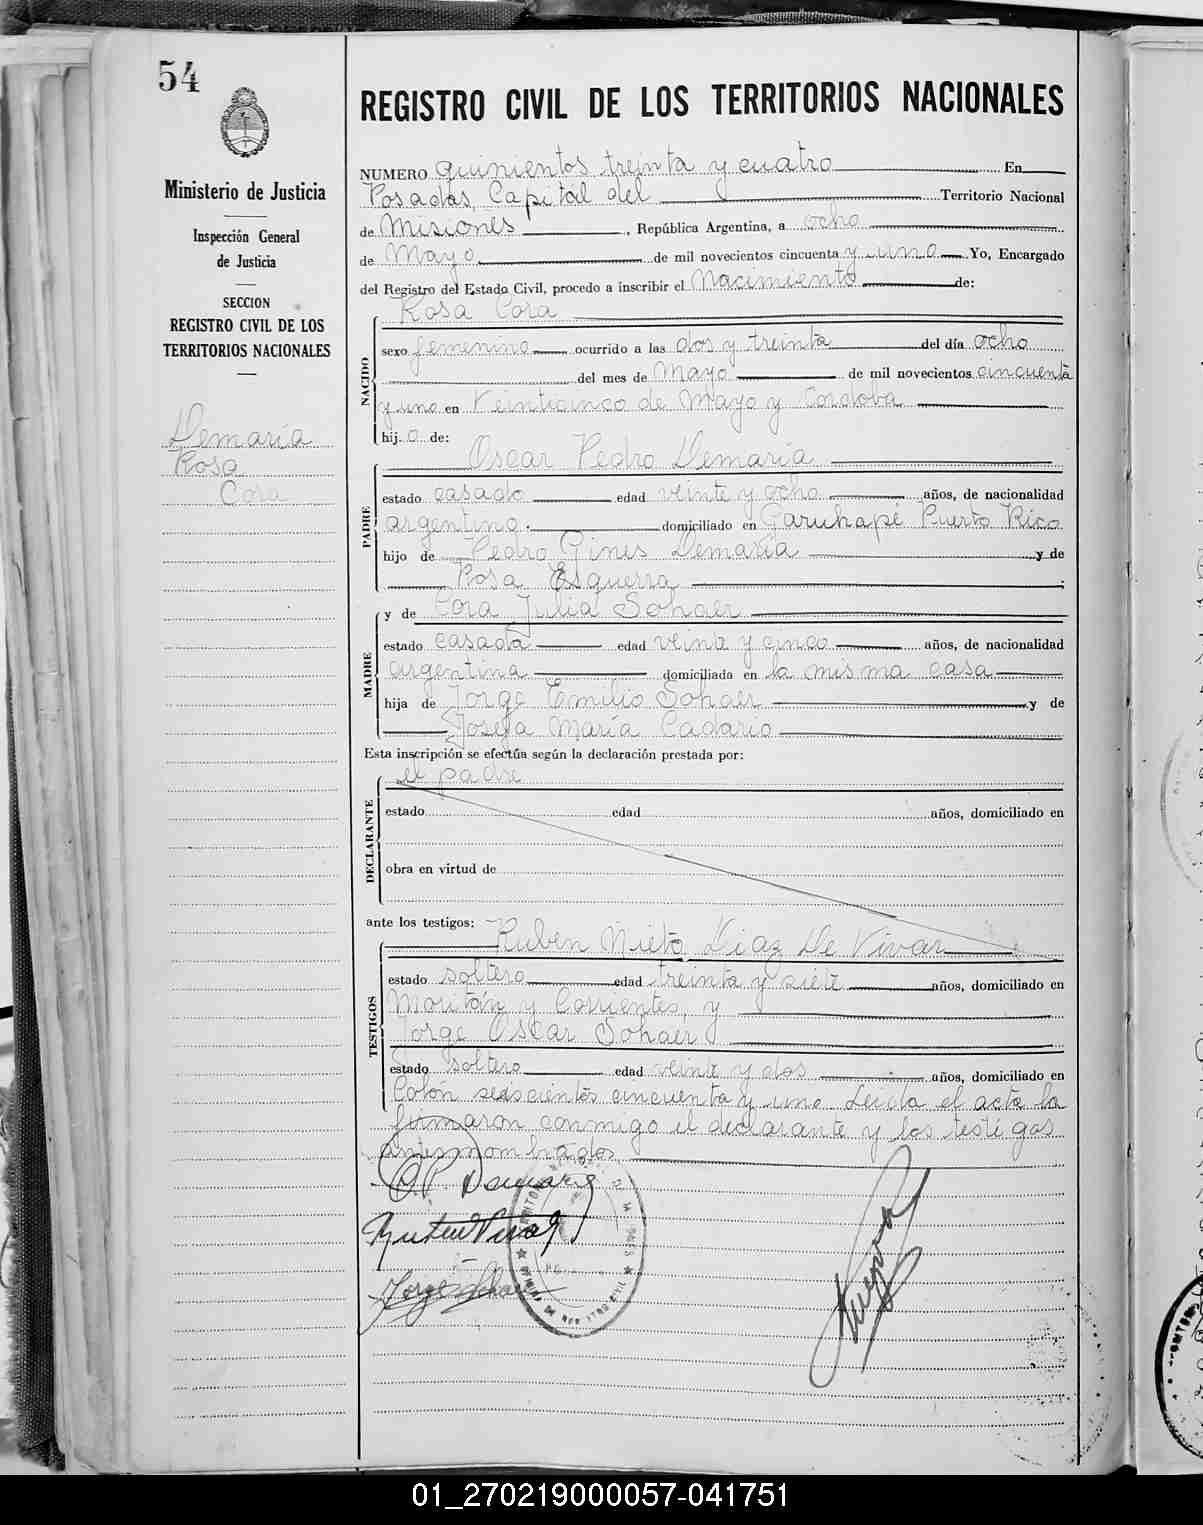 54
Ministerio de Justicia
Inspección General
de Justicia
SECCION
REGISTRO CIVIL DE LOS
TERRITORIOS NACIONALES
Demaría
Rosa
Cora
REGISTRO CIVIL DE LOS TERRITORIOS NACIONALES
NUMERO quinientos treinta y cuatro En
Posadas, Capital del Territorio Nacional
de Misiones, República Argentina, a ocho
de Mayo de mil novecientos cincuenta y uno Yo, Encargado
del Registro del Estado Civil, procedo a inscribir el Nacimiento de:
Rosa Cora
NACIDO
sexo femenino ocurrido a las dos y treinta del día ocho
del mes de Mayo de mil novecientos cincuenta
y uno en Veinticinco de Mayo y Cordoba
hij a de:
Oscar Pedro Demaría
PADRE
estado casado edad veinte y ocho años, de nacionalidad
argentino. domiciliado en Garuhapé Puerto Rico
hijo de Pedro Gines Demaría y de
Rosa Esquerra
y de Cora Julia Sohaer
MADRE
estado casada edad veinte y cinco años, de nacionalidad
argentina domiciliada en la misma casa
hija de Jorge Emilio Sohaer y de
Josefa María Cadario
Esta inscripción se efectúa según la declaración prestada por:
el padre
DECLARANTE
estado edad años, domiciliado en
obra en virtud de
ante los testigos: Ruben Nieto Diaz De Vivar
TESTIGOS
estado soltero edad treinta y siete años, domiciliado en
Moritán y Corrientes, y
Jorge Oscar Sohaer
estado soltero edad veinte y dos años, domiciliado en
Colón seiscientos cincuenta y uno. Leida el acta la
firmaron conmigo el declarante y los testigos
antesnombrados
O. P. Demaria
01_270219000057-041751